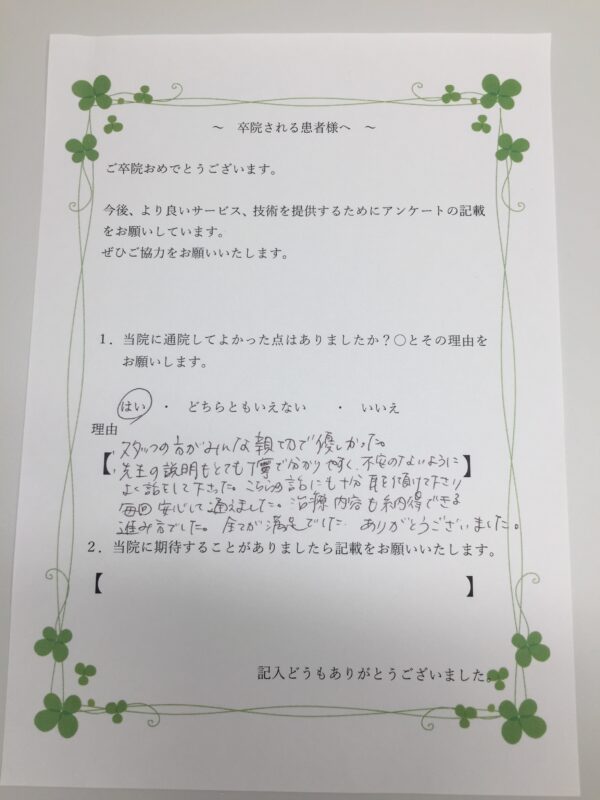 ～ 卒院される患者様へ ～
ご卒院おめでとうございます。
今後、より良いサービス、技術を提供するためにアンケートの記載
をお願いしています。
ぜひご協力をお願いいたします。
１．当院に通院してよかった点はありましたか？○とその理由を
お願いします。
はい ・ どちらともいえない ・ いいえ
理由
スタッフの方がみんな親切で優しかった。
【先生の説明もとても丁寧で分かりやすく、不安のないように】
よく話をして下さった。こちらの話にも十分耳を傾けて下さり
毎回安心して通えました。治療内容も納得できる
進み方でした。全てが満足でした。ありがとうございました。
２．当院に期待することがありましたら記載をお願いいたします。
【 】
記入どうもありがとうございました。